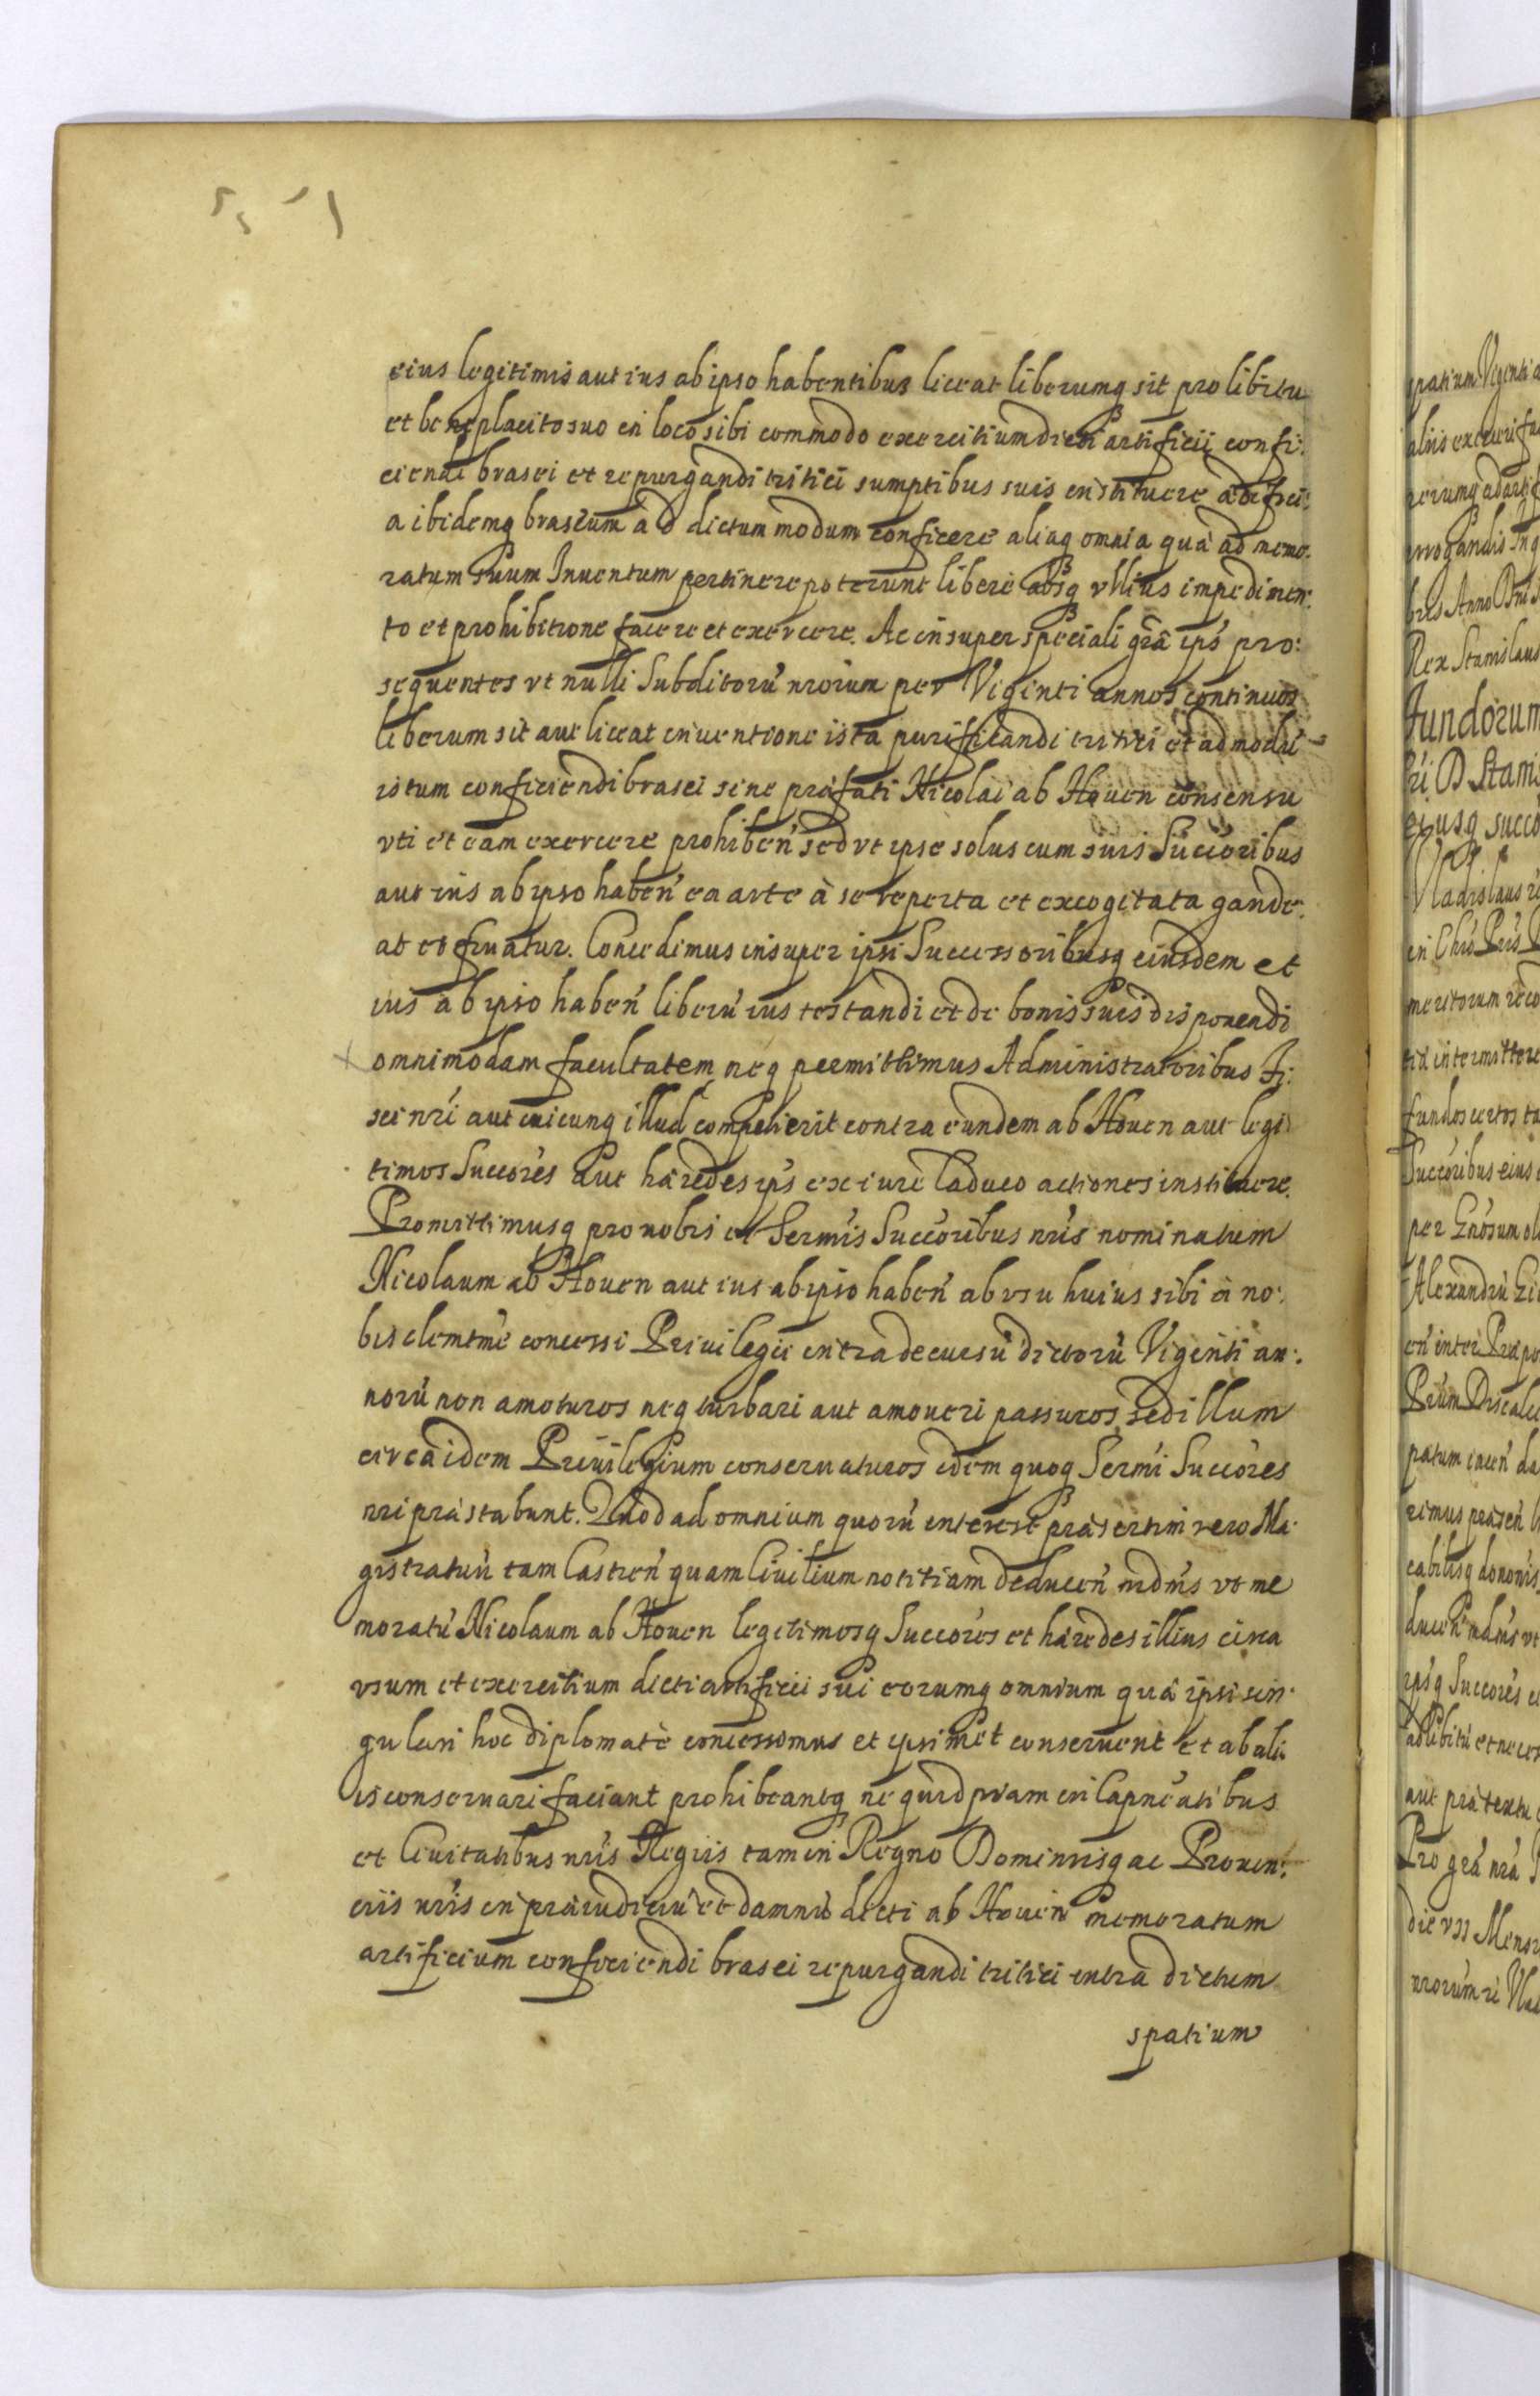 eius legitimis aut ius ab ipso habentibus liceat liberumq sit pro libitu
et beneplacito suo in loco sibi commodo exercitium dicti artificii confi:
ciendi brasei et repurgandi tritici sumptibus suis instituere ædifici:
a ibidemq braseum ad dictum modum conficere aliaq omnia quæ ad memo:
ratum suum Inuentum pertinere poterunt libere absq vllius impedimen:
to et prohibitione facere et exercere. Ac insuper speciali grâ ips' pro:
sequentes vt nulli Subditorú nrorum per Viginti annos continuos
liberum sit aut liceat inuentione ista purificandi tritici et ad modú
istum conficiendi brasei sine præfati Nicolai ab Houen consensu
vti et eam exercere prohiben' sed vt ipse solus cum suis Succoribus
aut ius ab ipso haben' ea arte à se reperta et excogitata gaude:
at et fruatur. Concedimus insuper ipsi Successoribusq eiusdem et
ius ab ipso haben' liberú ius testandi et de bonis suis disponendi
omnimodam facultatem, neq permittimus Administratoribus Fi:
sci nri aut cuicunq illud competierit contra eundem ab Houen aut legi
timos Succores aut hæredes ips' ex iure Caduco actiones instituere.
Promittimusq pro nobis et Sermis Succoribus nris nominatum
Nicolaum ab Houen aut ius ab ipso haben' ab vsu huius sibi à no:
bis clementme concessi Priuilegii intra decursú dictorú Viginti an:
norú non amoturos neq turbari aut amoueri passuros, sed illum
circa idem Priuilegium conseruaturos idem quoq Sermi Succores
nri præstabunt. Quod ad omnium quorú interest præsertim vero Ma:
gistratuú tam Castren' quam Ciuilium notitiam deducen' mdmus vt me
moratú Nicolaum ab Houen legitimosq Succores et hæredes illius circa
vsum et exercitium dicti artificii sui eorumq omnium quæ ipsi sin:
gulari hoc diplomate concessimus et ipsimet conseruent et ab ali:
is conseruari faciant prohibeantq ne quidpiam in Capneatibus
et Ciuitatibus nris Regiis tam in Regno Dominiisq ac Prouin:
ciis nris in præiudiciú et damnú dicti ab Houen memoratum
artificium conficiendi brasei repurgandi tritici intra dictum
spatium